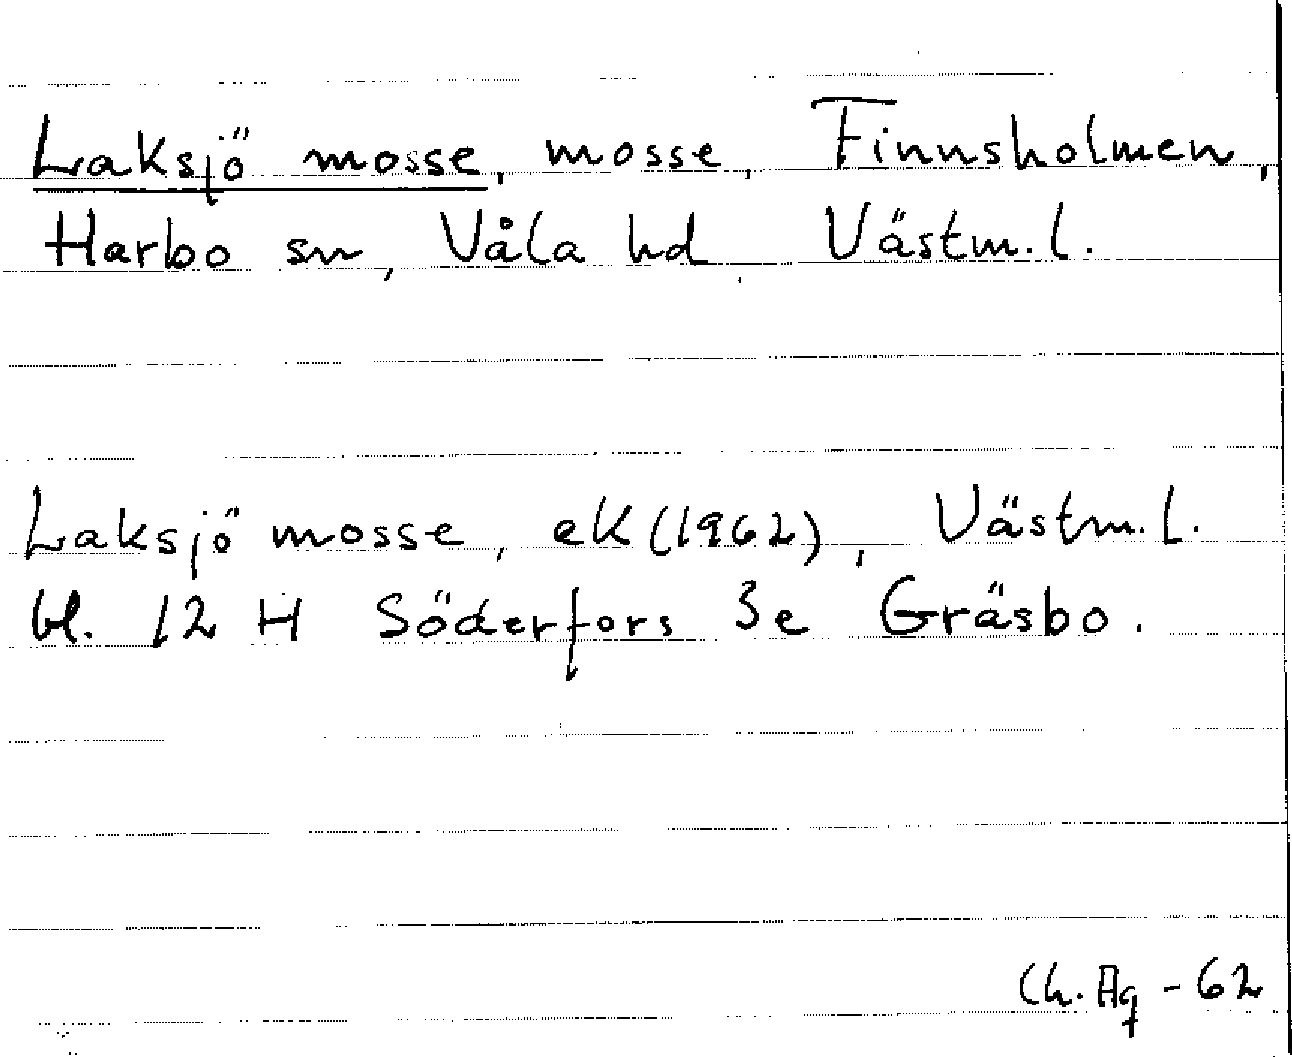 Laksjö mosse, mosse, Finnsholmen,
Harbo sn, Våla hd, Västm. l.
Laksjö mosse, eK (1962), Västm. l.
bl. 12 H Söderfors 3e Gräsbo.
Ch. Ag - 62